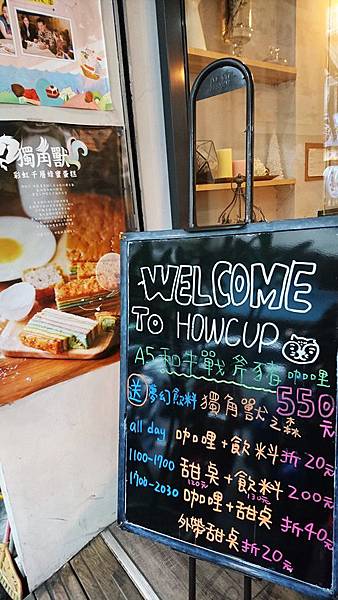 獨角獸
彩虹千層蜂蜜蛋糕
WELCOME
TO HOWCUP
A5和牛戰斧豬 咖哩
送 夢幻飲料 獨角獸之森 550元
all day 咖哩+飲料 折20元
1100-1700 甜桌+飲料 200元
120元 130元
1700-2030 咖哩+甜桌 折40元
外帶甜桌 折20元